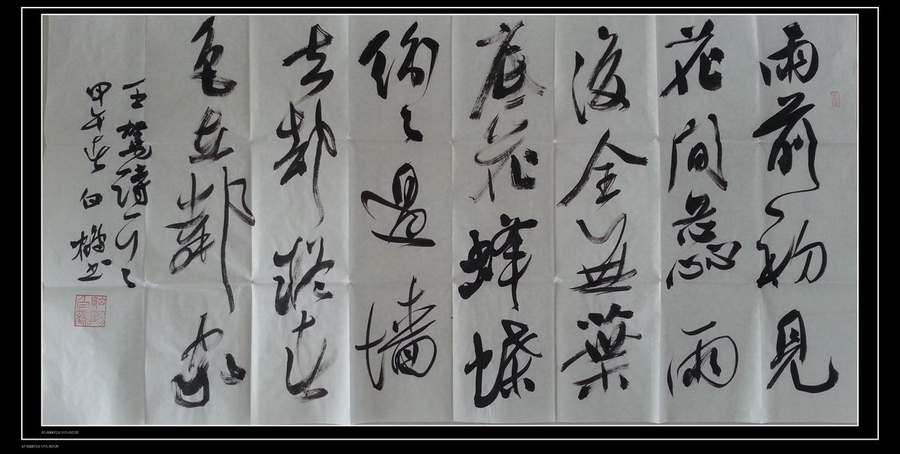 雨前初見
花間蕊雨
後全無葉
底花蜂蝶
紛々過墙
去却疑春
色在鄰家
王駕詩一首
甲午春白書